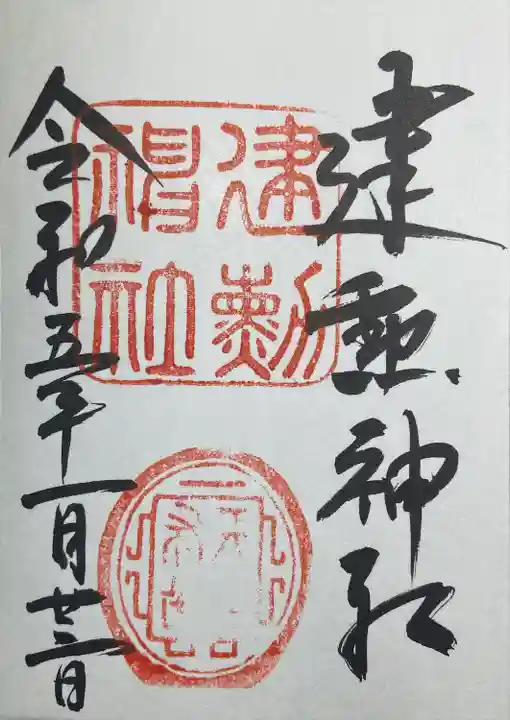 建勲神社
建勲
神社
令和五年一月廿二日